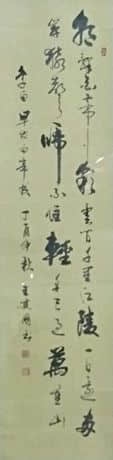 朝辭白帝彩雲間千里江陵一日還兩
岸猿聲啼不住輕舟已過萬重山
李白早發白帝城 丁酉仲秋 王 書